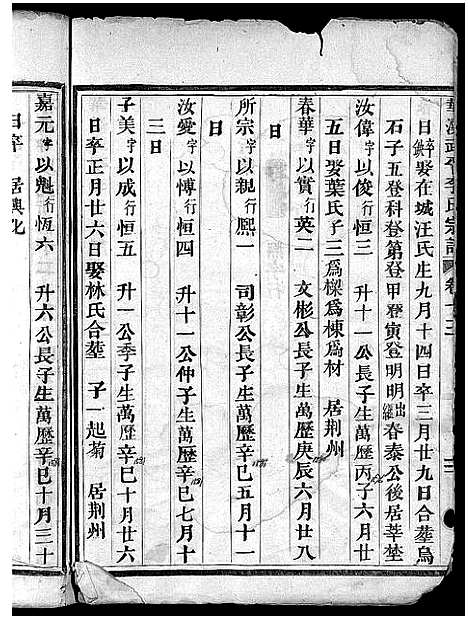 日卒娶在城汪氏生九月十四日卒三月廿九日合塟烏
石子五登科登第登甲登寅登明明出繼春泰公後居莘塋
汝偉字以俊行恒三 升十一公長子生萬歷丙子六月廿
五日娶葉氏子三爲樑爲棟爲材 居荆州
春華字以實行英二 文彬公長子生萬歷庚辰六月廿八
日
所宗字以親行熈一 司彰公長子生萬歷辛巳五月十一
日
汝愛字以慱行恒四 升十一公仲子生萬歷辛巳七月十
三日
子美字以成行恒五 升一公季子生萬歷辛巳十月廿六
日卒正月廿六日娶林氏合塟 子一起菊 居荆州
嘉元字以魁行恆六 升六公長子生萬歷辛巳十月三十
日卒 居興化